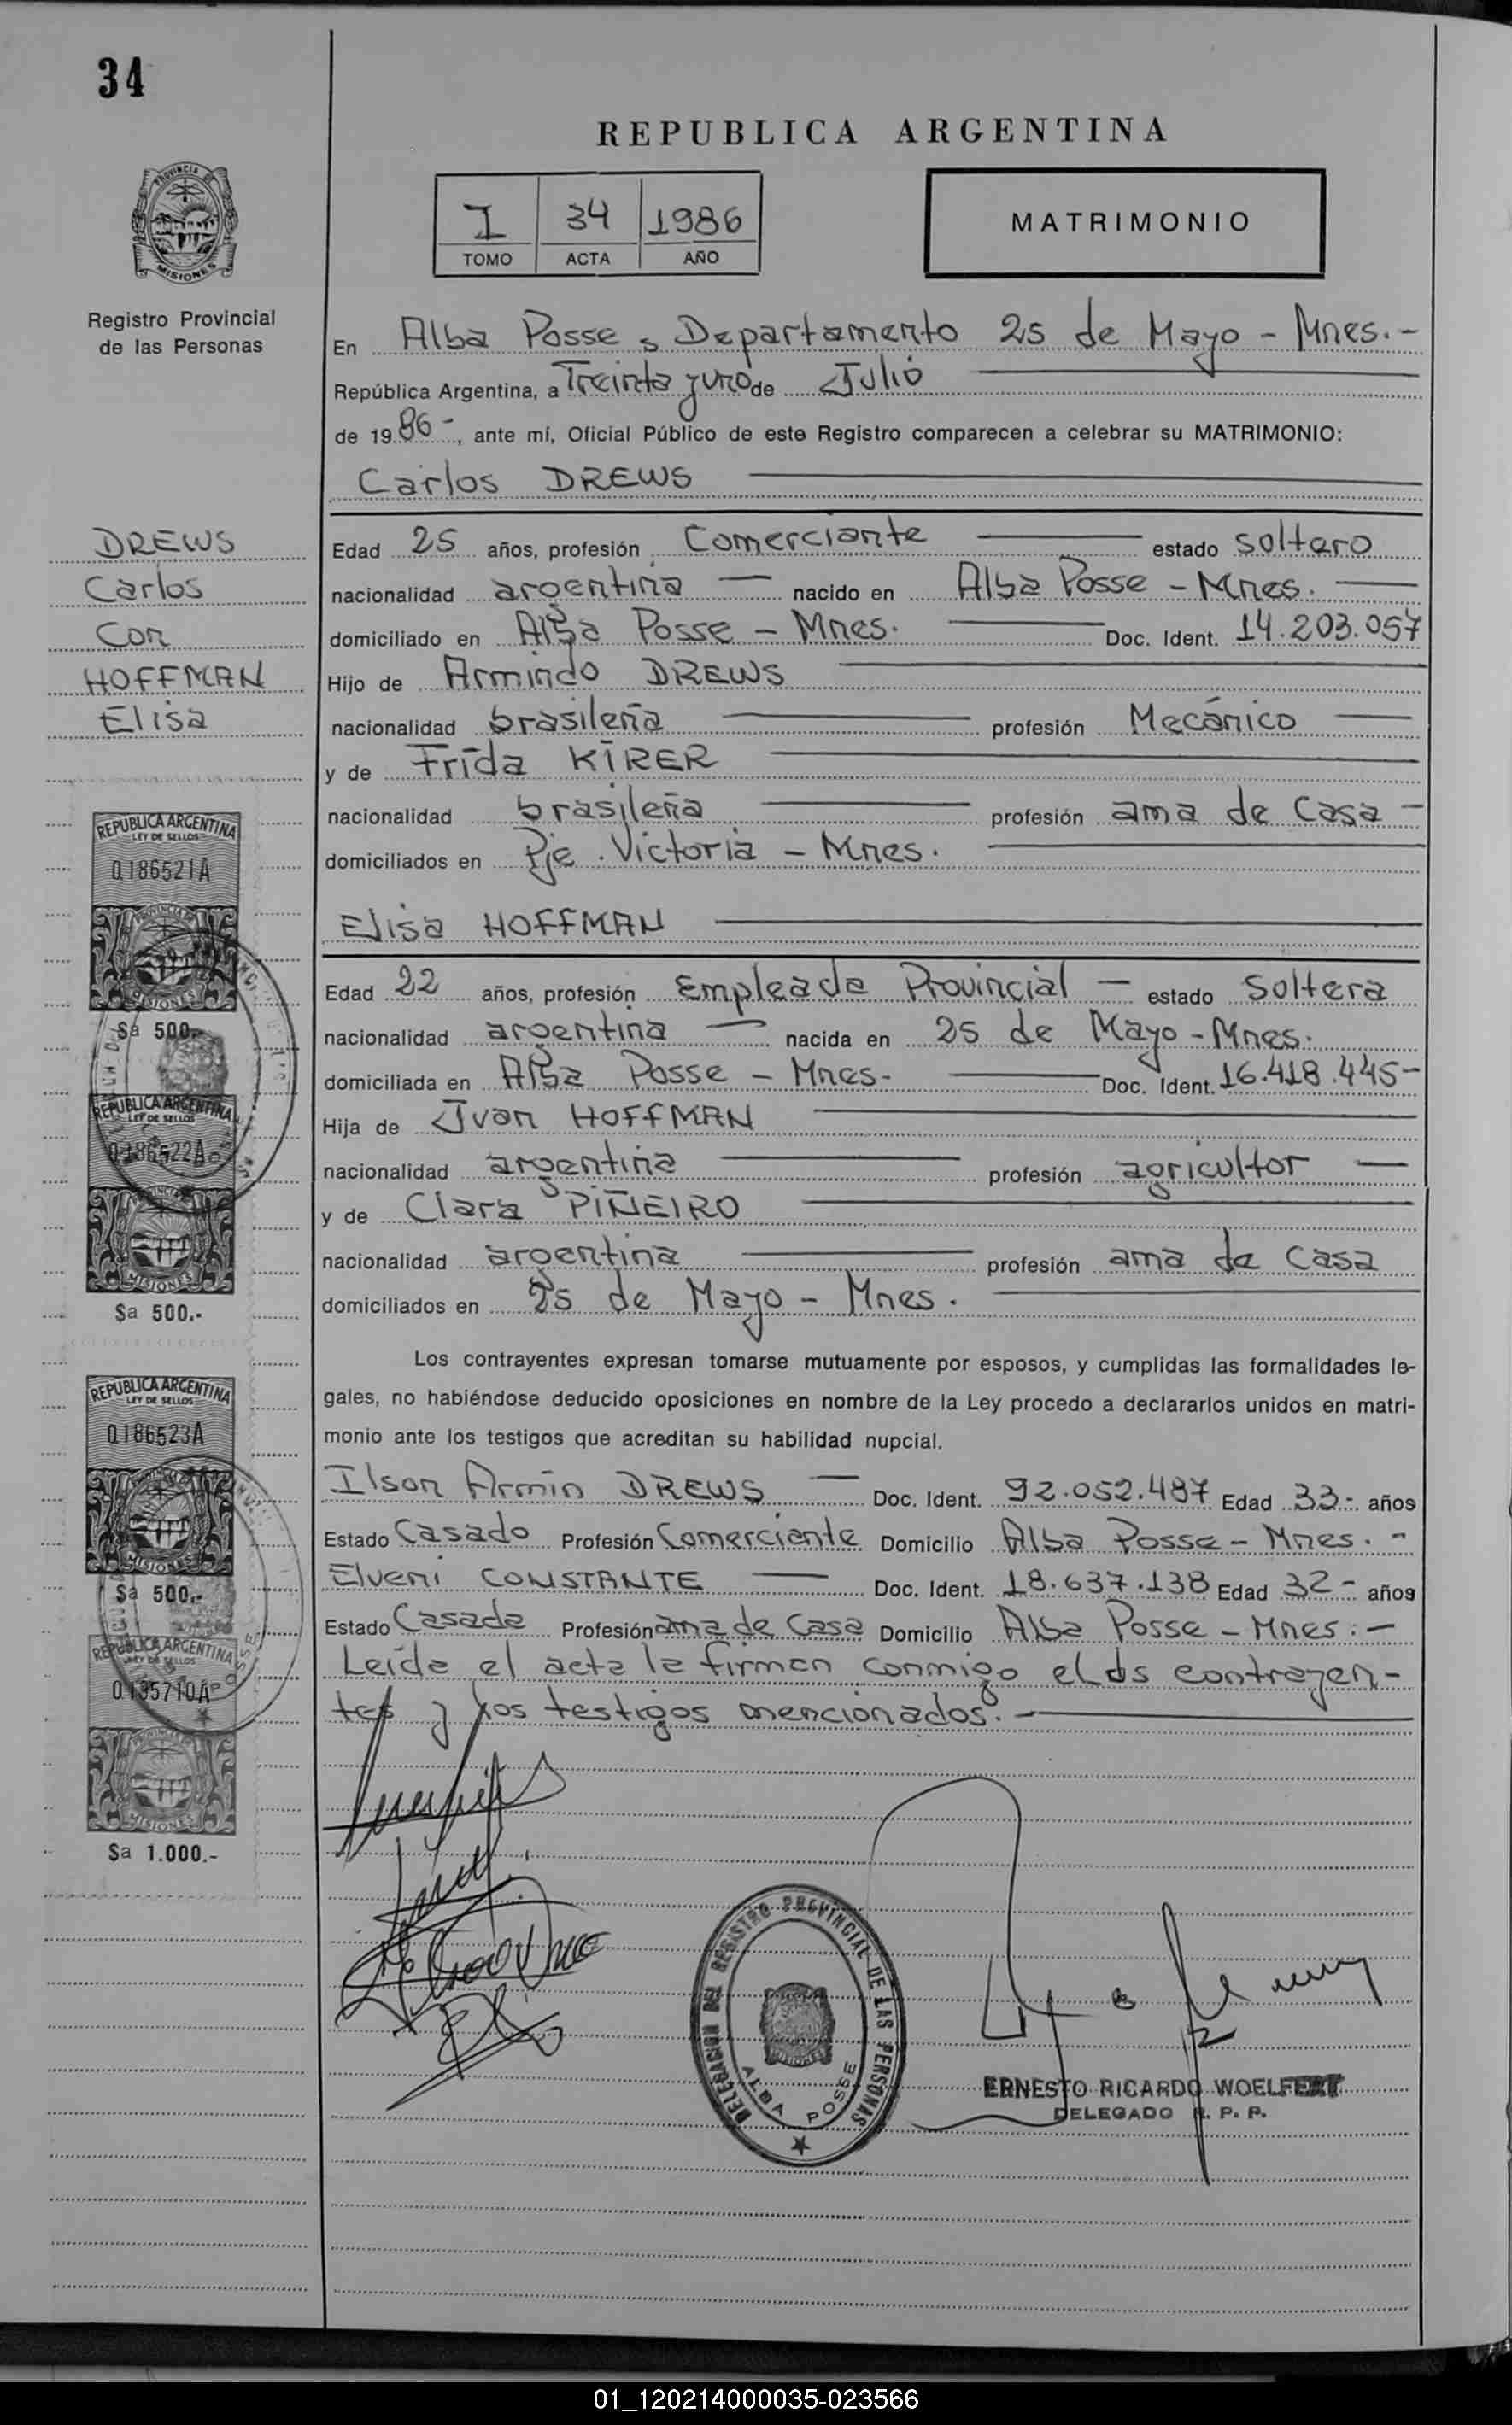 34
REPUBLICA ARGENTINA
I 34 1986
TOMO ACTA AÑO
MATRIMONIO
PROVINCIA DE
MISIONES
Registro Provincial
de las Personas
En Alba Posse, Departamento 25 de Mayo - Mnes.-
República Argentina, a Treinta y uno de Julio
de 1986-, ante mí, Oficial Público de este Registro comparecen a celebrar su MATRIMONIO:
Carlos DREWS
DREWS
Carlos
con
HOFFMAN
Elisa
Edad 25 años, profesión Comerciante estado soltero
nacionalidad argentina nacido en Alba Posse - Mnes.
domiciliado en Alba Posse - Mnes. Doc. Ident. 14.203.057
Hijo de Armindo DREWS
nacionalidad brasileña profesión Mecánico
y de Frida KIRER
nacionalidad brasileña profesión ama de Casa -
domiciliados en Pje. Victoria - Mnes.
Elisa HOFFMAN
Edad 22 años, profesión Empleada Provincial - estado soltera
nacionalidad argentina nacida en 25 de Mayo - Mnes.
domiciliada en Alba Posse - Mnes- Doc. Ident. 16.418.445-
Hija de Ivan HOFFMAN
nacionalidad argentina profesión agricultor
y de Clara PIÑEIRO
nacionalidad argentina profesión ama de Casa
domiciliados en 25 de Mayo - Mnes.
Los contrayentes expresan tomarse mutuamente por esposos, y cumplidas las formalidades le-
gales, no habiéndose deducido oposiciones en nombre de la Ley procedo a declararlos unidos en matri-
monio ante los testigos que acreditan su habilidad nupcial.
Ilson Armin DREWS Doc. Ident. 92.052.487 Edad 33- años
Estado Casado Profesión Comerciante Domicilio Alba Posse - Mnes. -
Elveni CONSTANTE Doc. Ident. 18.637.138 Edad 32- años
Estado Casada Profesión ama de Casa Domicilio Alba Posse - Mnes. -
Leída el acta la firman conmigo el ds contrayen-
tes y los testigos mencionados. -
REPUBLICA ARGENTINA
LEY DE SELLOS
0186521A
MISIONES
$a 500.-
REPUBLICA ARGENTINA
LEY DE SELLOS
0186522A
MISIONES
$a 500.-
REPUBLICA ARGENTINA
LEY DE SELLOS
0186523A
MISIONES
$a 500.-
REPUBLICA ARGENTINA
LEY DE SELLOS
0135710A
MISIONES
$a 1.000.-
DELEGACION DEL REGISTRO PROVINCIAL DE LAS PERSONAS
MISIONES
ALBA POSSE
ERNESTO RICARDO WOELFERT
DELEGADO R. P. P.
01_120214000035-023566